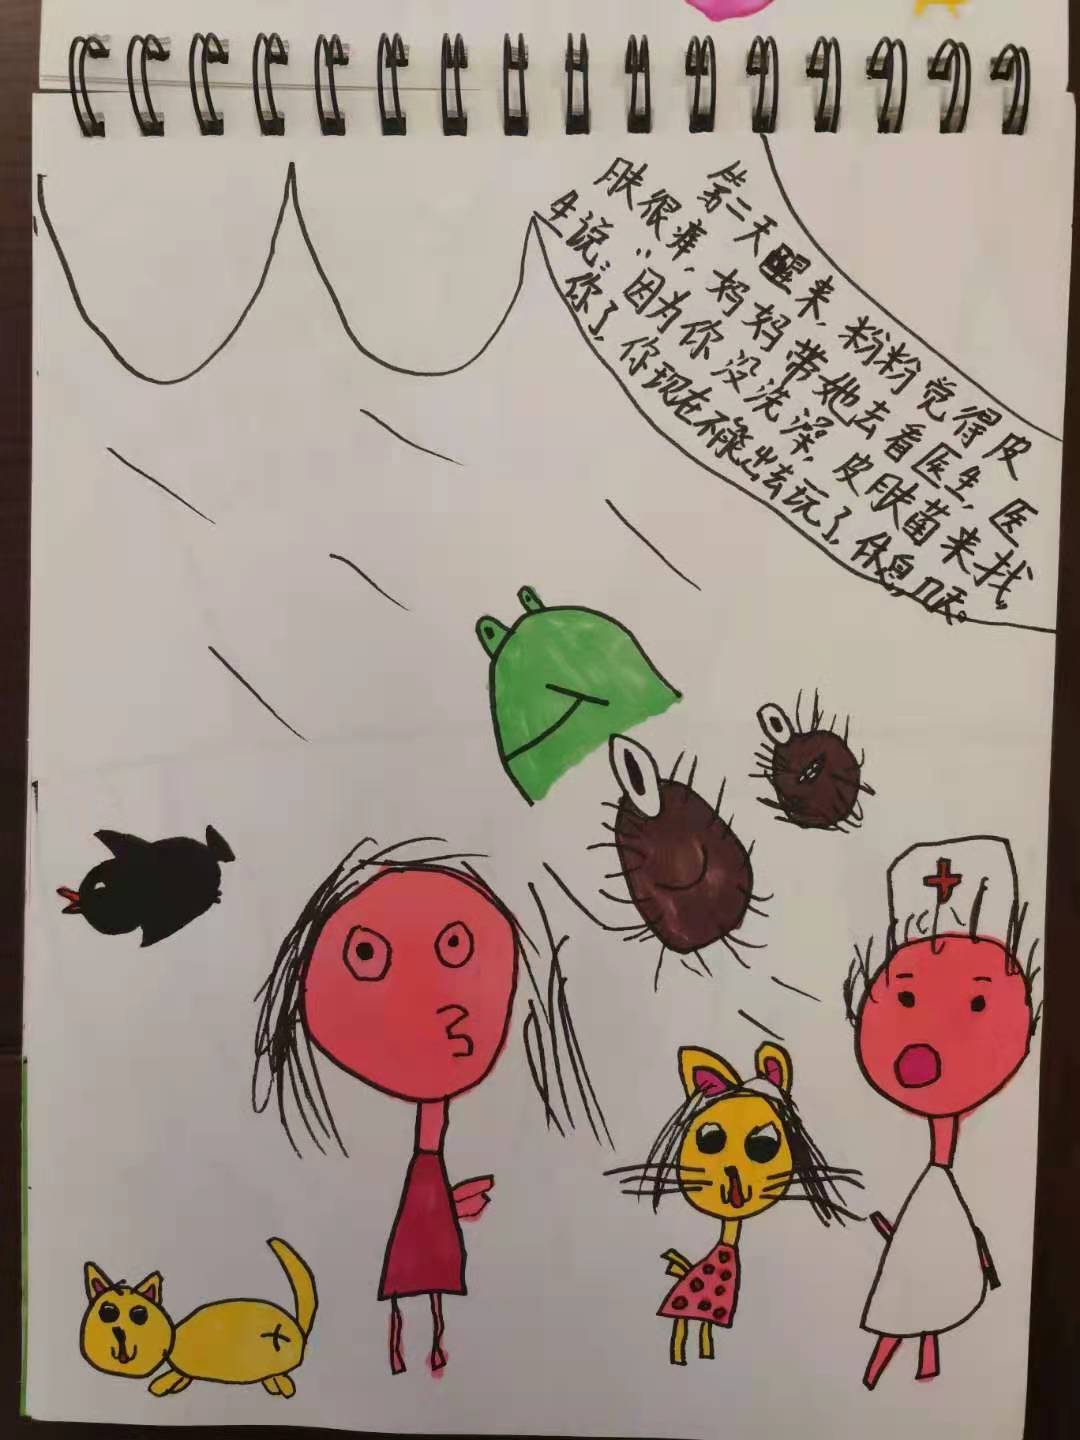 第二天醒来,粉粉觉得皮
肤很痒,妈妈带她去看医生,医
生说:“因为你没洗澡,皮肤菌来找
你了,你现在不能出去玩了,休息几天。”